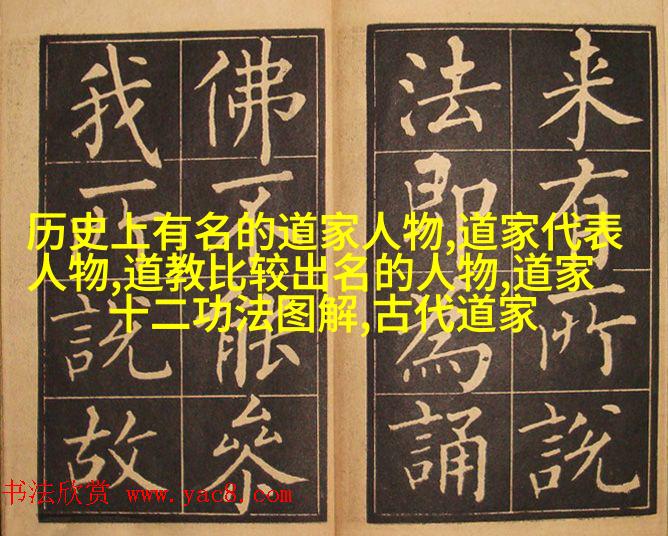 来有所說
法即為誦
佛不能叅
我正說故
历史上有名的道家人物,道家代表
人物,道教比较出名的人物,道家
十二功法图解,古代道家
书法欣赏 www.yac8.com